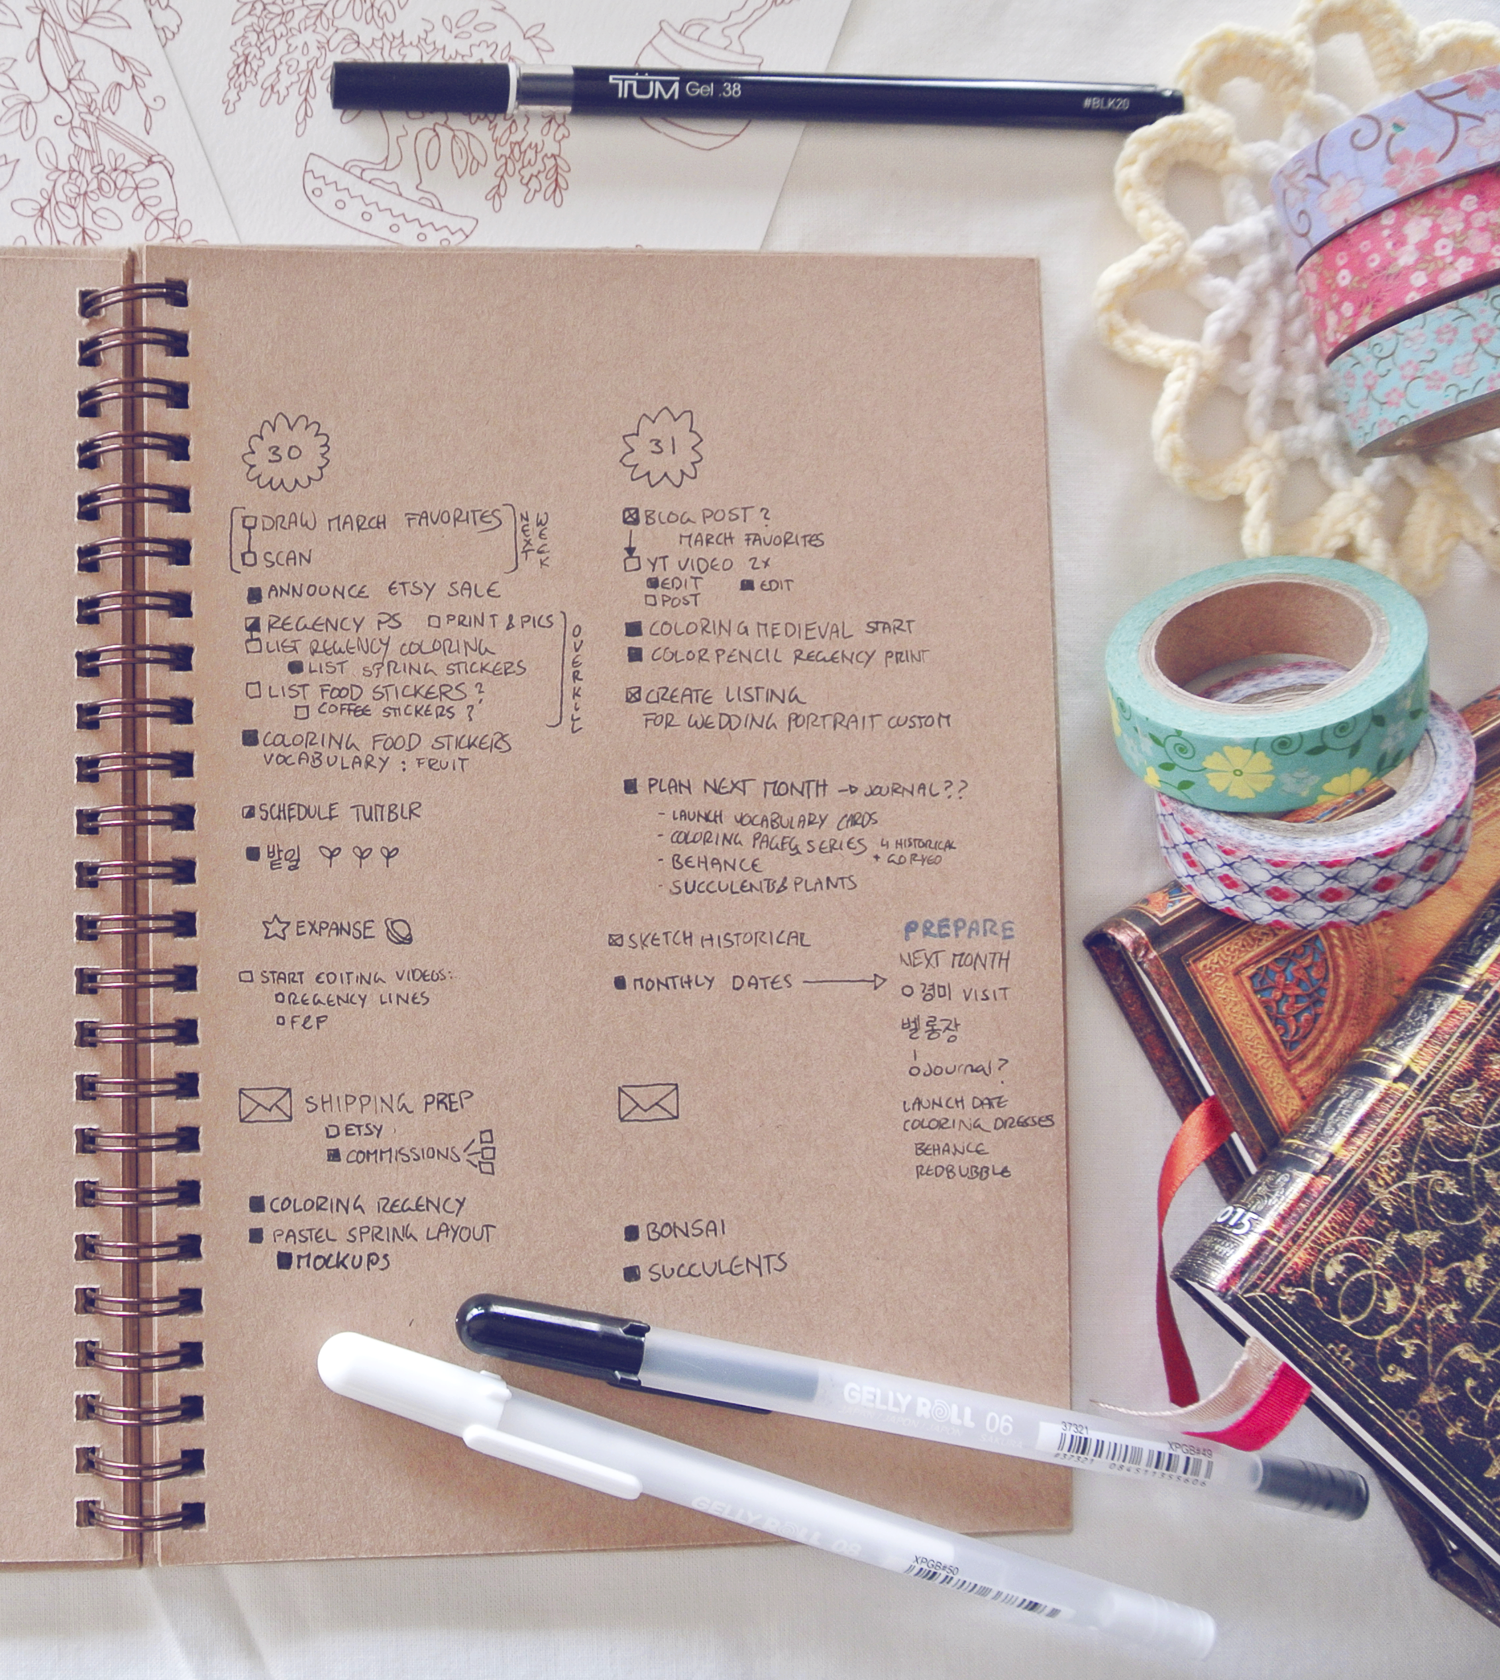 TÜM Gel .38
#BLK20
30
DRAW MARCH FAVORITES
SCAN
NEXT
WEEK
ANNOUNCE ETSY SALE
REGENCY PS PRINT & PICS
LIST REGENCY COLORING
LIST SPRING STICKERS
LIST FOOD STICKERS?
COFFEE STICKERS?
OVERKILL
COLORING FOOD STICKERS
VOCABULARY : FRUIT
SCHEDULE TUMBLR
밭일
EXPANSE
START EDITING VIDEOS:
REGENCY LINES
F&P
SHIPPING PREP
ETSY
COMMISSIONS
COLORING REGENCY
PASTEL SPRING LAYOUT
MOCKUPS
31
BLOG POST?
MARCH FAVORITES
YT VIDEO 2X
EDIT EDIT
POST
COLORING MEDIEVAL START
COLORPENCIL REGENCY PRINT
CREATE LISTING
FOR WEDDING PORTRAIT CUSTOM
PLAN NEXT MONTH → JOURNAL??
- LAUNCH VOCABULARY CARDS
- COLORING PAGES SERIES 4 HISTORICAL
+ GORYEO
- BEHANCE
- SUCCULENTS & PLANTS
SKETCH HISTORICAL
MONTHLY DATES
PREPARE
NEXT MONTH
경미 VISIT
벨롱장
Journal?
LAUNCH DATE
COLORING DRESSES
BEHANCE
REDBUBBLE
BONSAI
SUCCULENTS
2015
GELLY ROLL 06
37321
XPGB#49
#37321 084511355606
GELLY ROLL 08
XPGB#50